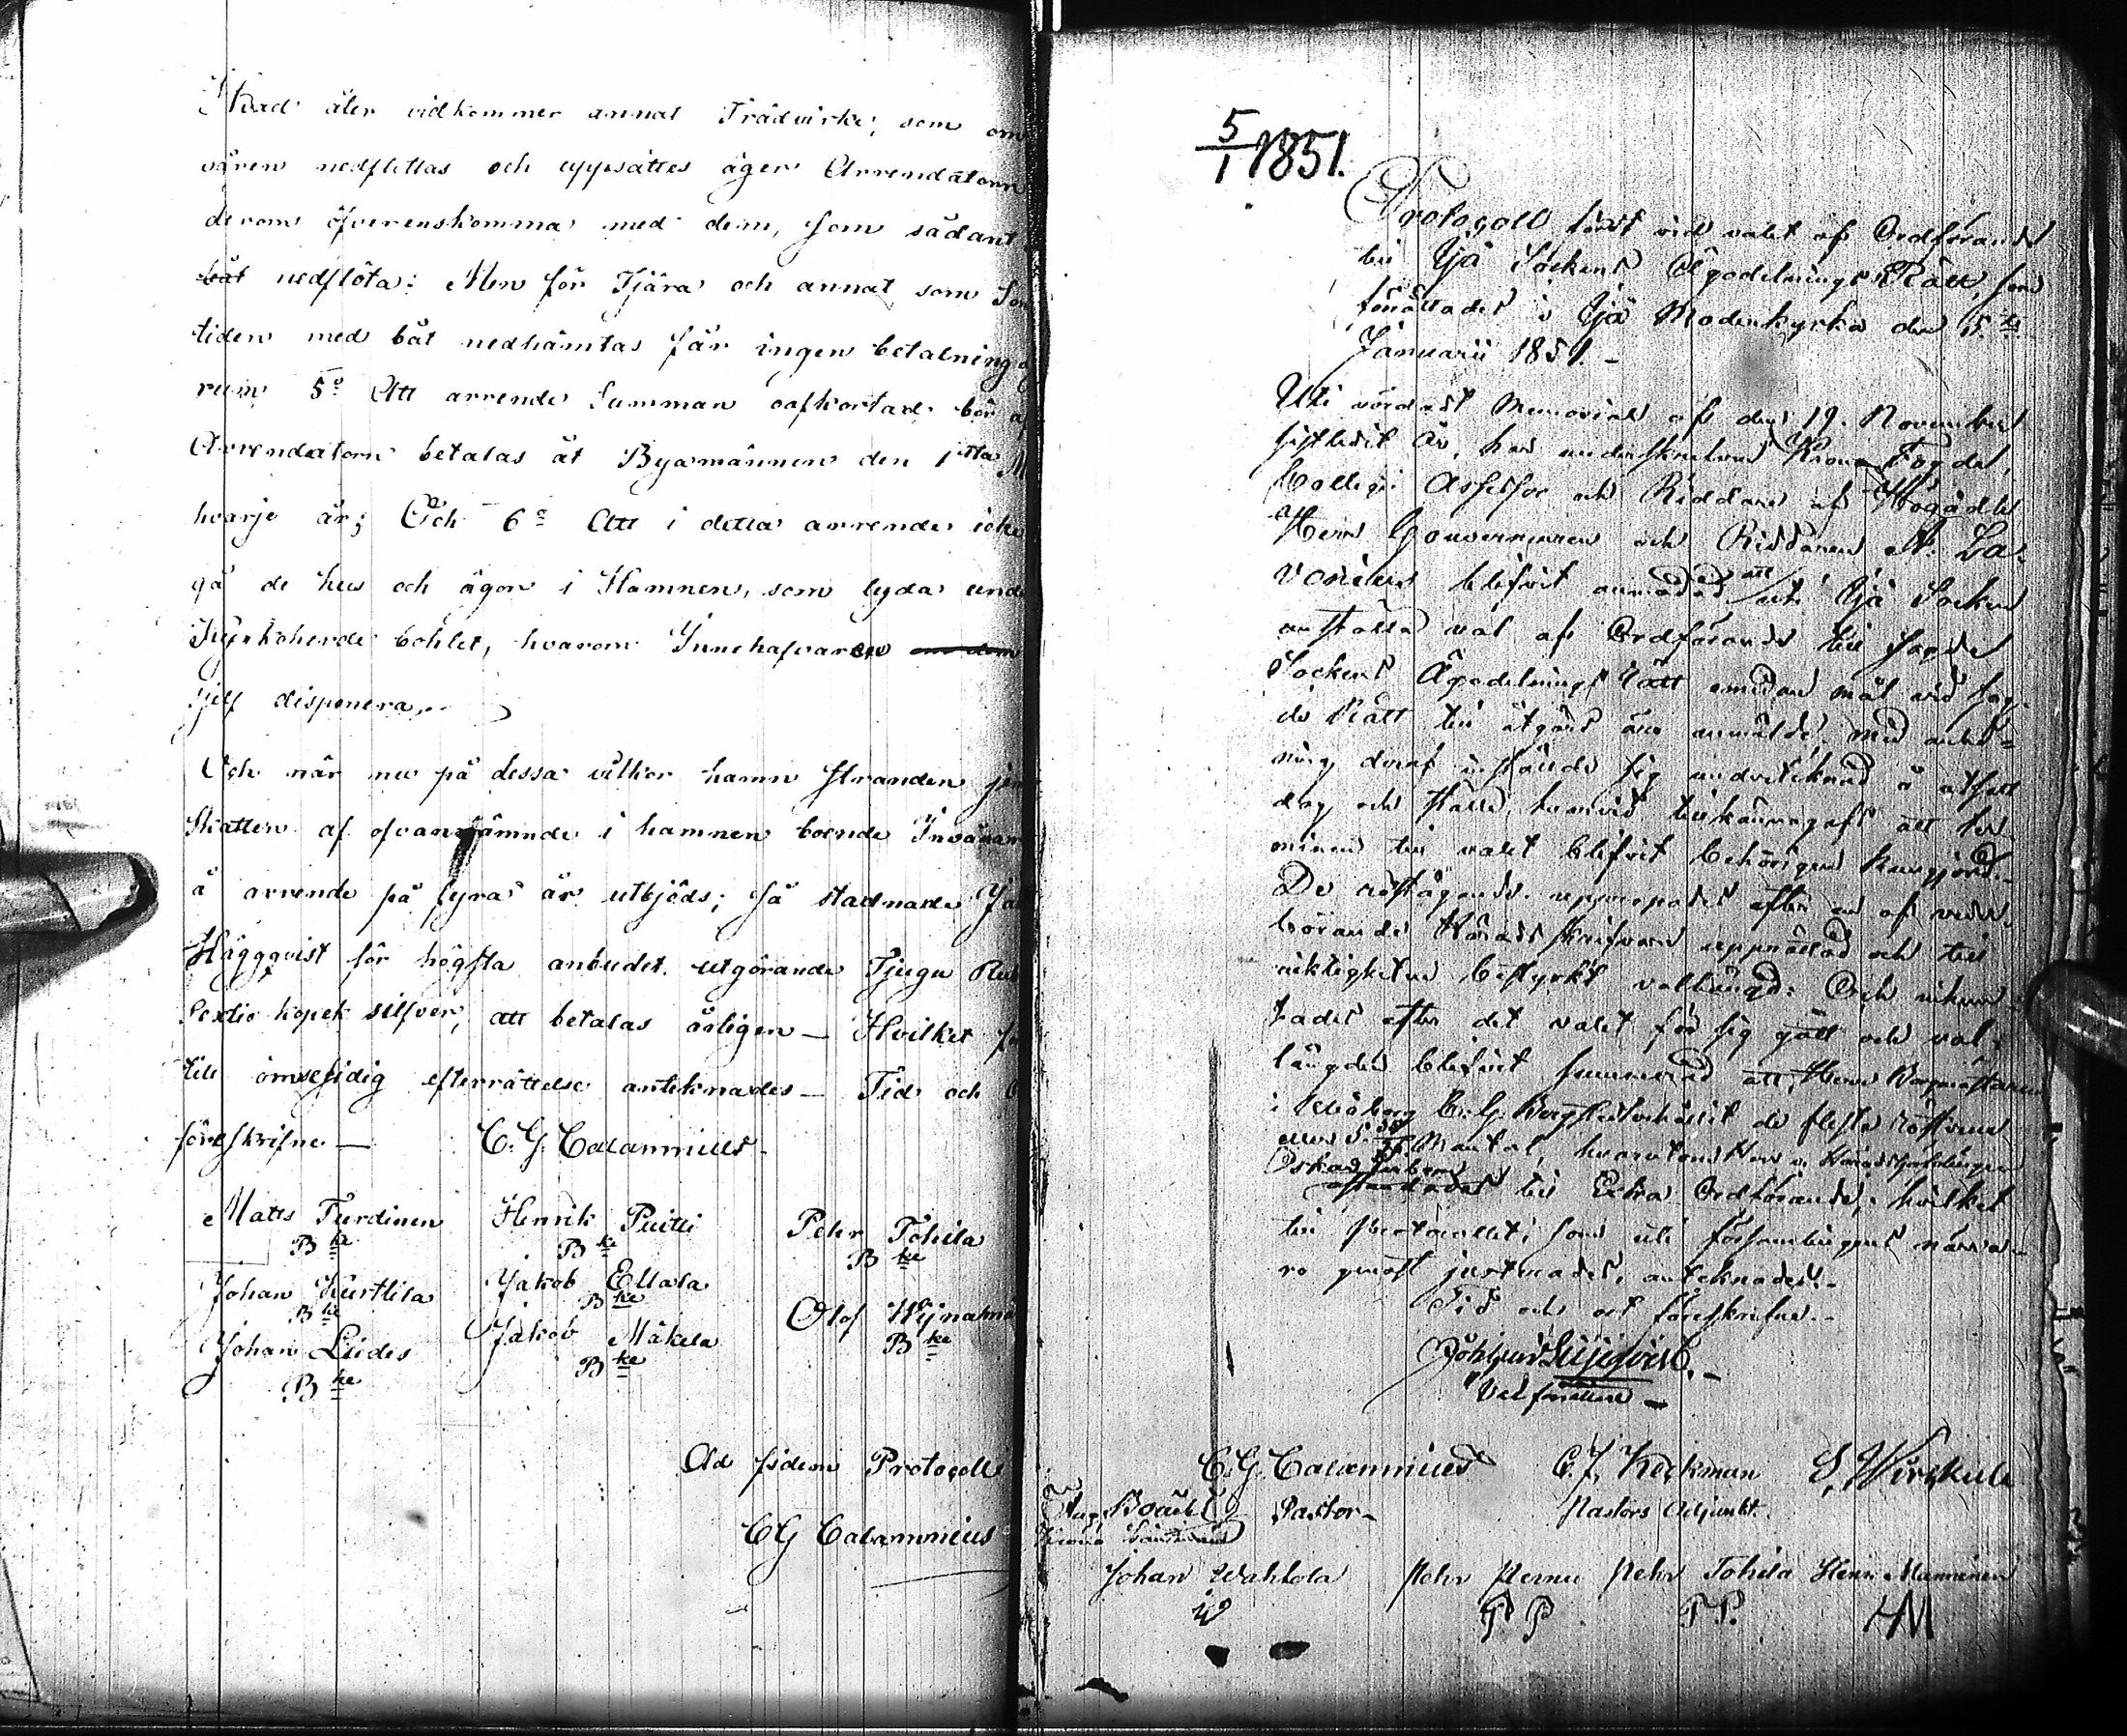 Hvad åter vidkommer annat Trädvirke, som om
våren nedflottas och uppsättes äger Arrendatorn
derom öfverenskomma med dem, som sådant
låt nedflöta: Men för Tjära och annat som Som
tiden med båt nedhämtas får ingen betalning
rum, 5o Att arrende Summan oafkortad bör af
Arrendatorn betalas åt Byamännen den 1sta M
hvarje år; Och 6o Att i detta arrende icke
gå de hus och ägor i Hamnen, som lyda und
Kyrkoherde bohlet, hvarom Innehafvaren
sjelf disponera.
Och när nu på dessa vilkor hamn stranden je
Skatten af ofvannämnde i hamnen boende Invånar
å arrende på fyra år utbjöds; så stadnade Ja
Häggqvist för högsta anbudet, utgörande Tjugu Rub
Sextio kopek silfver, att betalas årligen — Hvilket
till ömsesidig efterrättelse antecknades — Tid och
föreskrifne — C. G. Calamnius
Matts Turdinen Henrik Puitti Pehr Tohila
Bke Bke Bke
Johan Kurttila Jakob Ellala Olof
Bke Bke Bke
Johan Liedes Jakob Mäkela
Bke Bke
Ad fidem Protocolli
CG Calamnius
5/1 1851.
Protocoll fördt vid valet af Ordförande
till Ijå Sockens Ägodelnings Rätt, som
förrättades i Ijå Moderkyrka den 5te
Januarii 1851.
Uti vördadt Memorial af den 19. November
sistledit År, har undertecknad Krono Fogde,
Collegii Assessor och Riddare af Högädle
Herr Gouverneuren och Riddaren A. La-
vonius blifvit anmodad att uti Ijå Socken
anställa val af Ordförande till sagde
Sockens Ägodelnings rätt emedan mål vid sag-
de Rätt till åtgärd äro anmälde, med anled-
ning deraf instälde sig undertecknad å utsatt
dag och ställe, hvarvid tillkännagafs att ter-
minen till valet blifvit behörigen kungjord.
De röstägande uppropades efter en af veder-
börande Häradsskrifvare upprättad och till
riktigheten bestyrkt vallängd: Och
efter det valet för sig gått och val-
längden blifvit summerad att Herr Borgmästaren
i Uleåborg C. G. Bergstedt erhållit de flesta rösterna
eller 5 Mantal, hvarutom Herr v. Häradshöfdingen
Oskar till Extra Ordförande; hvilket
till Protocollet, som uti församlingens närva-
ro genast justerades, antecknades.
Tid och ort föreskrifne.
Liljeqvist.
Valförrättare
C. G. Calamnius C. J. Keckman S. Wirkkula
Pastor Pastors Adjunkt.
Johan Wahtola Pehr Pernu Pehr Tohila Henr. Manninen
W PP PT. HM